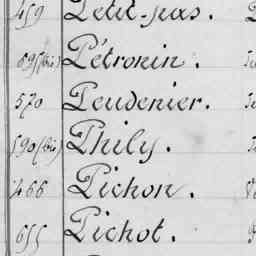 459 Petit-pas.
695 (bis) Pétronin.
570 Peudenier.
590 (bis) Phily.
466 Pichon.
655 Pichot.